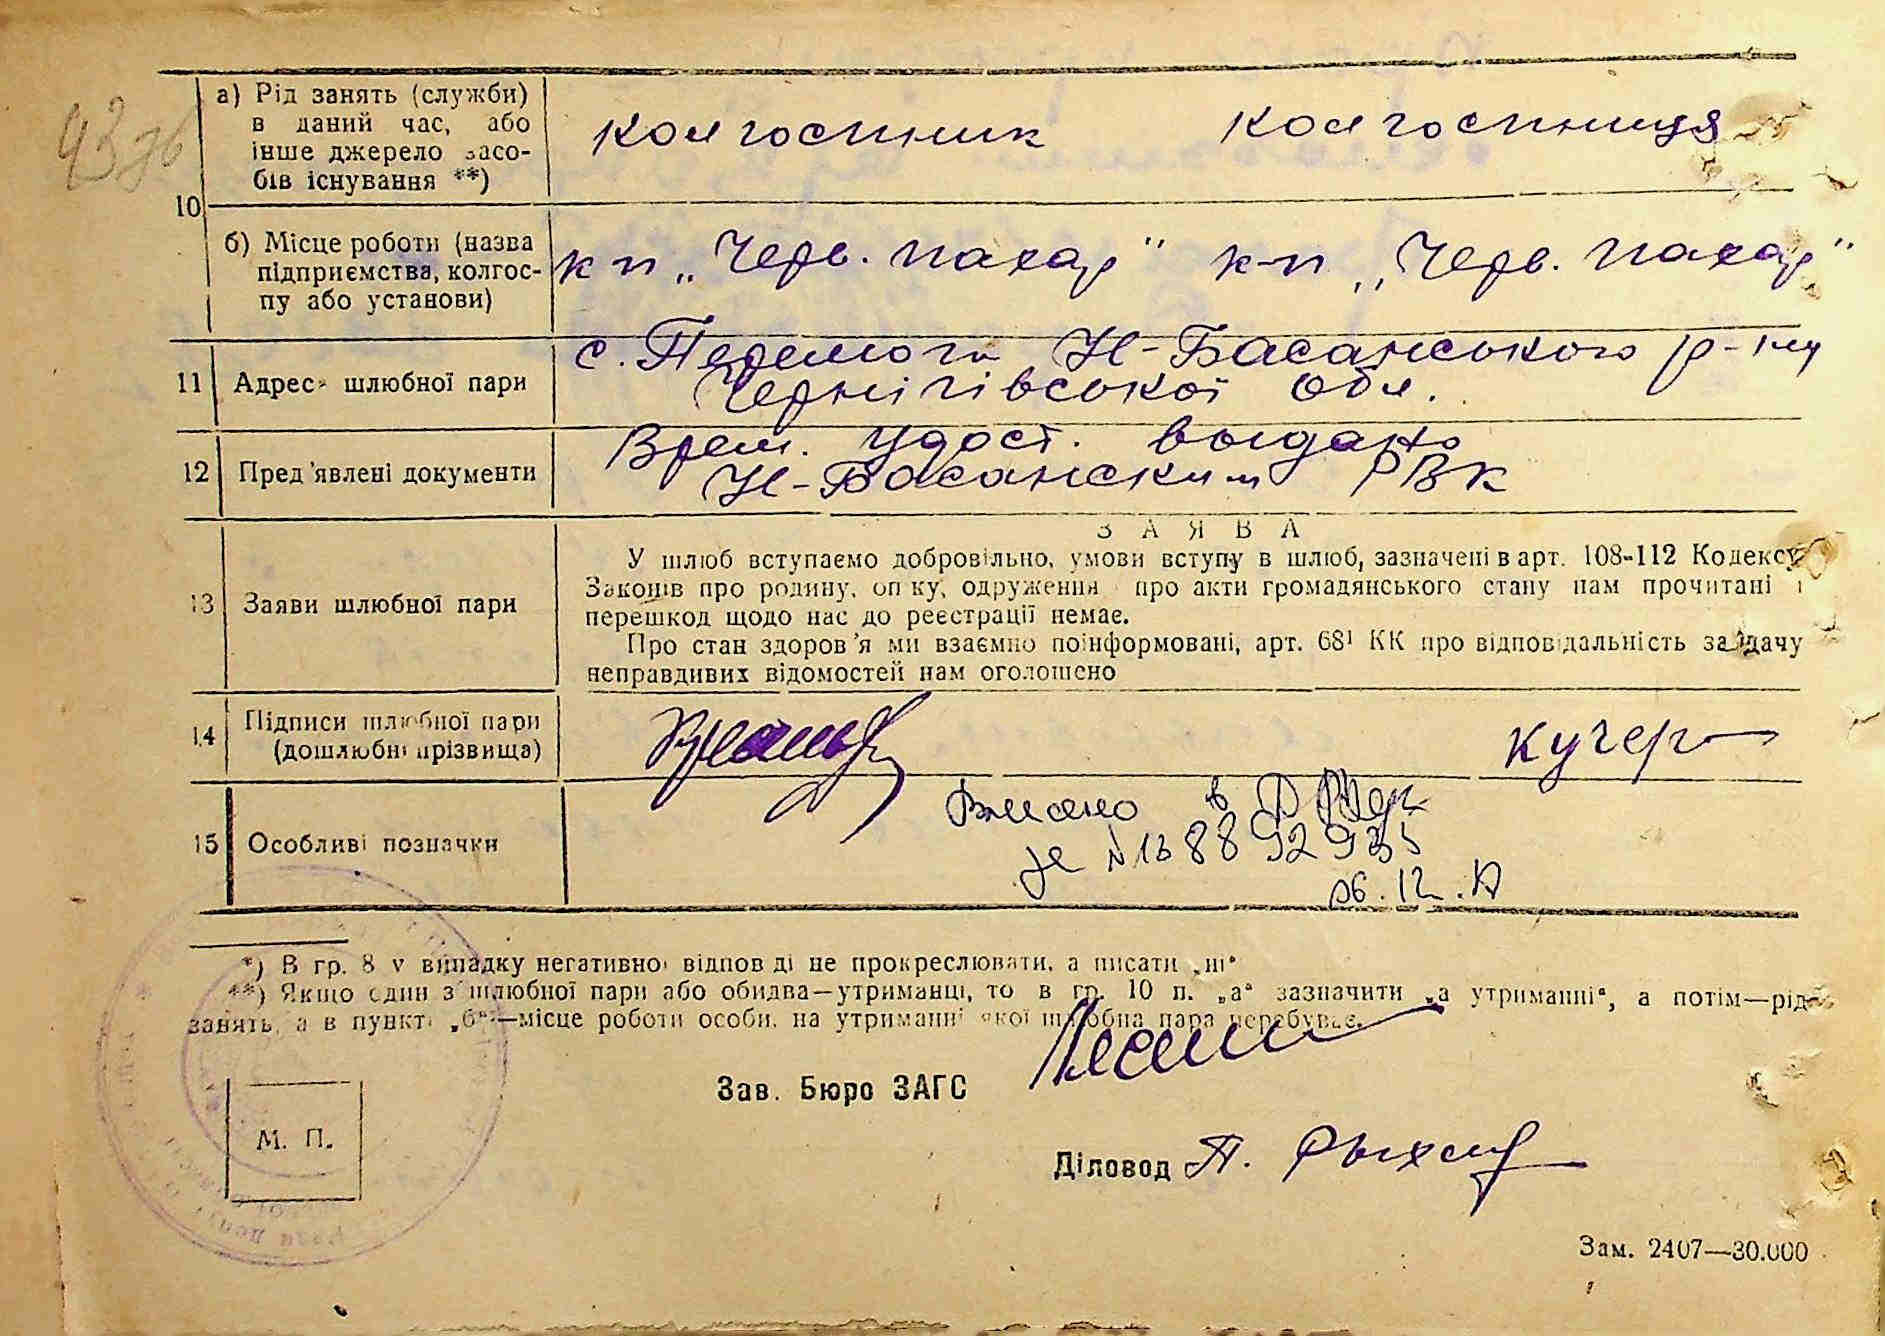 43 зв
а) Рід занять (служби)
в даний час, або
інше джерело засо-
бів існування **)
колгоспник колгоспниця
10
б) Місце роботи (назва
підприємства, колгос-
пу або установи)
к-п „Черв. пахар" к-п „Черв. пахар"
11 Адреса шлюбної пари
с. Перемога Н-Басанського р-ну
Чернігівської обл.
12 Пред'явлені документи
Врем. удост. выдано
Н-Басанским РВК
13 Заяви шлюбної пари
ЗАЯВА
У шлюб вступаємо добровільно, умови вступу в шлюб, зазначені в арт. 108-112 Кодексу
Законів про родину, опіку, одруження про акти громадянського стану нам прочитані і
перешкод щодо нас до реєстрації немає.
Про стан здоров'я ми взаємно поінформовані, арт. 68¹ КК про відповідальність за дачу
неправдивих відомостей нам оголошено
14 Підписи шлюбної пари
(дошлюбні прізвища)
Кучер
15 Особливі позначки
Внесено в
за №
06.12.
*) В гр. 8 у випадку негативної відповіді не прокреслювати, а писати „ні"
**) Якщо один з шлюбної пари або обидва—утриманці, то в гр. 10 п. „а" зазначити „а утриманні", а потім—рід
занять, а в пункті „б"—місце роботи особи, на утриманні якої шлюбна пара перебуває.
Зав. Бюро ЗАГС
М. П.
Діловод П.
Зам. 2407—30.000